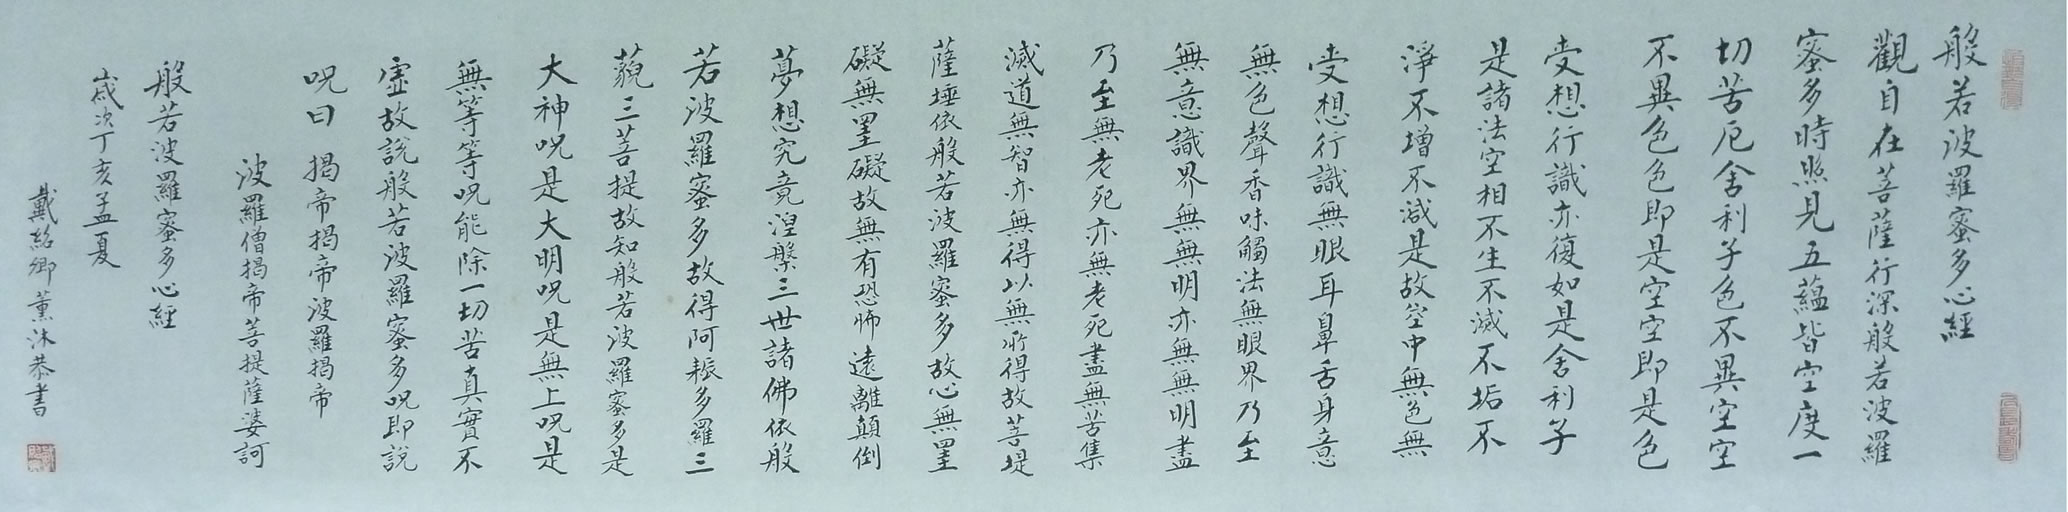 般若波羅蜜多心經
觀自在菩薩行深般若波羅
蜜多時照見五蘊皆空度一
切苦厄舍利子色不異空空
不異色色即是空空即是色
受想行識亦復如是舍利子
是諸法空相不生不滅不垢不
淨不增不減是故空中無色無
受想行識無眼耳鼻舌身意
無色聲香味觸法無眼界乃至
無意識界無無明亦無無明盡
乃至無老死亦無老死盡無苦集
滅道無智亦無得以無所得故菩提
薩埵依般若波羅蜜多故心無罣
礙無罣礙故無有恐怖遠離顛倒
夢想究竟涅槃三世諸佛依般
若波羅蜜多故得阿耨多羅三
藐三菩提故知般若波羅蜜多是
大神呪是大明呪是無上呪是
無等等呪能除一切苦真實不
虛故說般若波羅蜜多呪即說
呪曰 揭帝揭帝波羅揭帝
波羅僧揭帝菩提薩婆訶
般若波羅蜜多心經
歲次丁亥孟夏
戴紹卿薰沐恭書